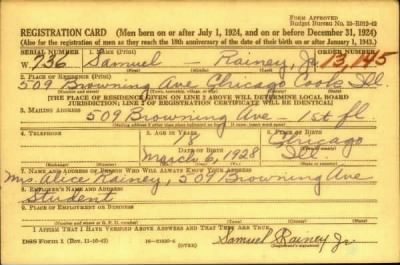 FORM APPROVED
Budget Bureau No. 33-R012-42
REGISTRATION CARD—(Men born on or after July 1, 1924, and on or before December 31, 1924)
(Also for the registration of men as they reach the 18th anniversary of the date of their birth on or after January 1, 1943.)
SERIAL NUMBER 1. NAME (Print) ORDER NUMBER
W. 736 Samuel — Rainey, Jr 13,145
2. PLACE OF RESIDENCE (Print)
509 Browning Ave Chicago Cook Ill
[THE PLACE OF RESIDENCE GIVEN ON LINE 2 ABOVE WILL DETERMINE LOCAL BOARD
JURISDICTION; LINE 2 OF REGISTRATION CERTIFICATE WILL BE IDENTICAL]
3. MAILING ADDRESS
509 Browning Ave 1st fl.
4. TELEPHONE 5. AGE IN YEARS 6. PLACE OF BIRTH
18 Chicago
DATE OF BIRTH
March 6, 1928 Ill
7. NAME AND ADDRESS OF PERSON WHO WILL ALWAYS KNOW YOUR ADDRESS
Mrs. Alice Rainey, 509 Browning Ave
8. EMPLOYER'S NAME AND ADDRESS
Student
9. PLACE OF EMPLOYMENT OR BUSINESS
I AFFIRM THAT I HAVE VERIFIED ABOVE ANSWERS AND THAT THEY ARE TRUE.
DSS Form 1 (Rev. 11-16-42) (OVER) Samuel Rainey Jr